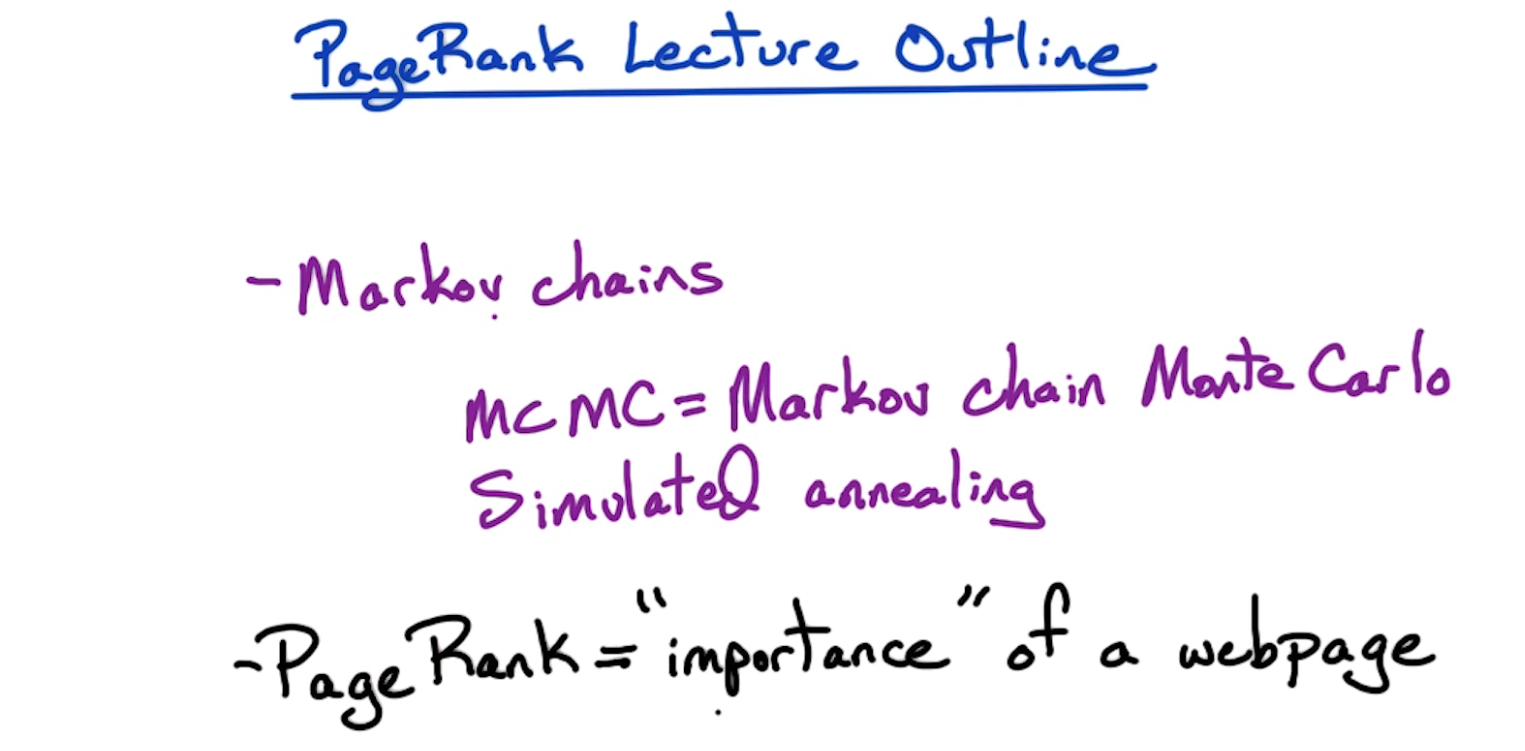 PageRank Lecture Outline
- Markov chains
MCMC = Markov chain Monte Carlo
Simulated annealing
- PageRank = "importance" of a webpage